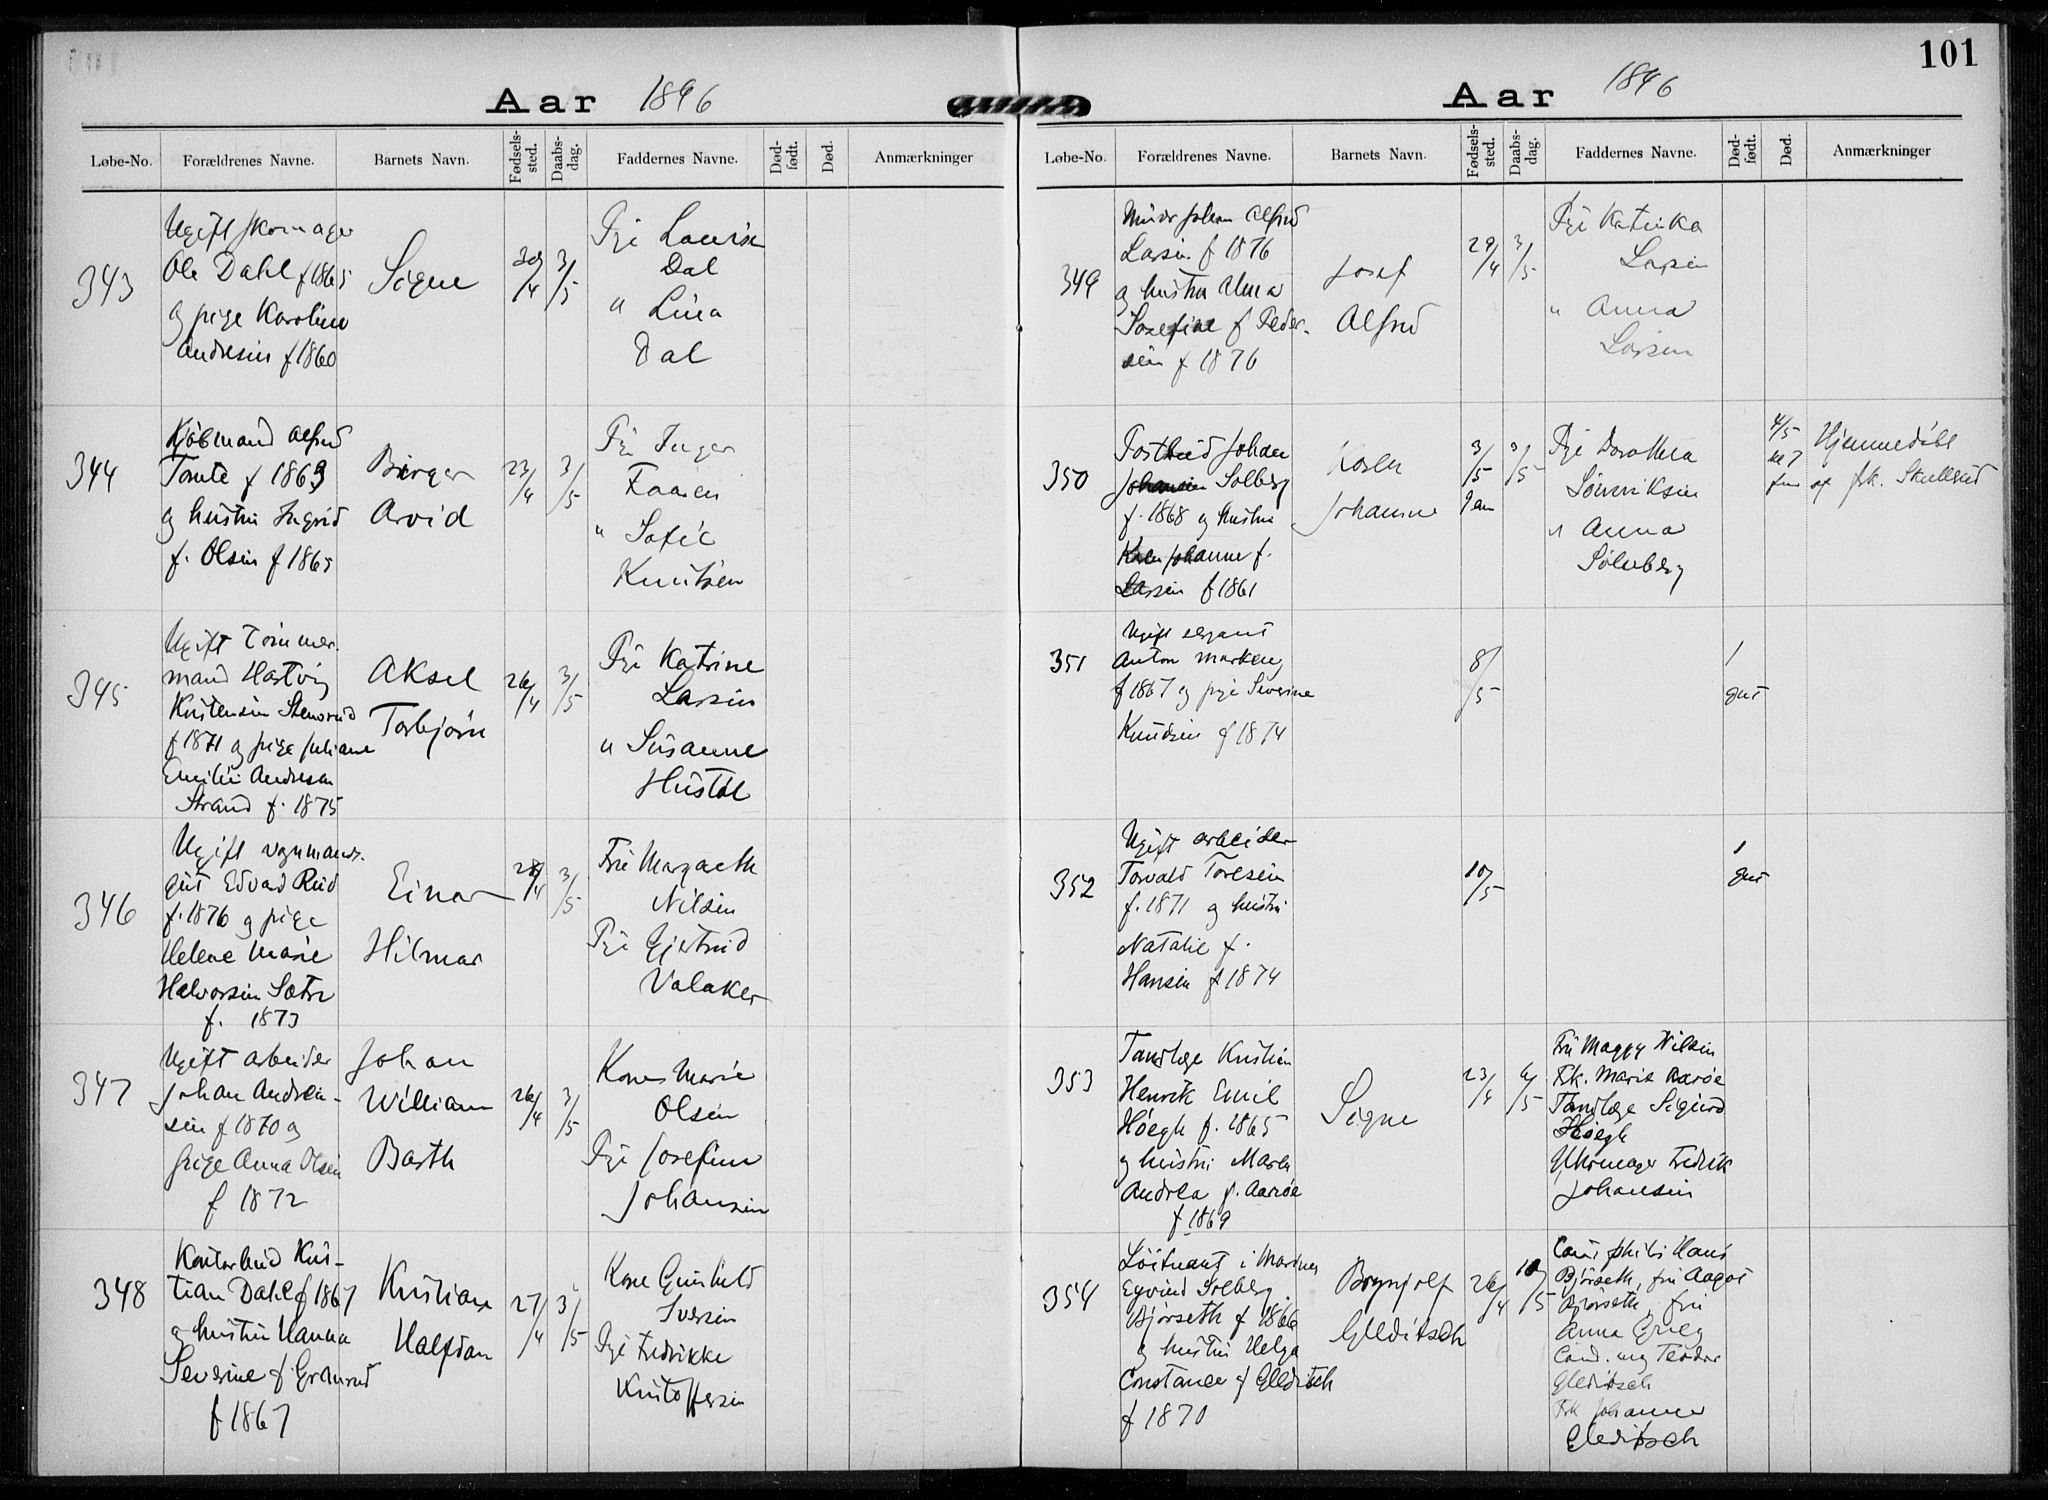 Aar 1896
Løbe-No. Forældrenes Navne. Barnets Navn. Fødsels-sted. Daabs-dag. Faddernes Navne. Død-født. Død. Anmærkninger
343
Ugift skomager
Ole Dahl f 1865
og pige Karoline
Andresen f 1860
Signe
30/4
3/5
Pige Lovise
Dal
" Lina
Dal
344
Kjøbmand Alfred
Tomte f 1863
og hustru Ingrid
f. Olsen f 1865
Birger
Arvid
23/4
3/5
Pige Inger
Faaren
" Sofie
Knutsen
345
Ugift Tømmer-
mand Hartvig
Kristensen Stensrud
f 1871 og pige Juliane
Emilie Andresen
Strand f. 1875
Aksel
Torbjørn
26/4
3/5
Pige Katrine
Larsen
" Susanne
Hustøl
346
Ugift vognmands-
gut Edvard Rud
f. 1876 og pige
Helene Marie
Halvorsen Sætre
f. 1873
Einar
Hilmar
28/4
3/5
Fru Margaeth
Nilsen
Pige Gjertrud
Valaker
347
Ugift arbeider
Johan Andrea-
sen f 1870 og
pige Anna Olsen
f 1872
Johan
William
Barth
26/4
3/5
Kone Marie
Olsen
Pige Josefine
Johansen
348
Kontorbud Kris-
tian Dahl f 1867
og hustru Hanna
Severine f
f 1867
Kristian
Halfdan
27/4
3/5
Kone Gunhild
Iversen
Pige Fredrikke
Kristoffersen
101
Aar 1896
Løbe-No. Forældrenes Navne. Barnets Navn. Fødsels-sted. Daabs-dag. Faddernes Navne. Død-født. Død. Anmærkninger
349
Murer Johan Alfred
Larsen f 1876
og hustru Alma
Josefine f Peder-
sen f 1876
Josef
Alfred
29/4
3/5
Pige Katinka
Larsen
" Anna
Larsen
350
Postbud Johan
Johansen Solberg
f. 1868 og hustru
Karen Johanne f.
Larsen f 1861
Karen
Johanne
3/5
3/5
Pige Dorothea
Søvriksen
" Anna
Sølvberg
4/5
Hjemmedøbt
af frk. Skullerud
351
Ugift sergeant
Anton Markeng
f 1867 og pige Severine
Knudsen f 1874
8/5
1
gut
352
Ugift arbeider
Torvald Toresen
f. 1871 og hustru
Natalie f.
Hansen f 1874
10/5
1
gut
353
Tandlæge Kristian
Henrik Emil
Høegh f. 1865
og hustru Maren
Andrea f. Aarøe
f 1869
Signe
23/4
6/5
Fru Maggy Nilsen
Frk. Marie Aarøe
Tandlæge Sigurd
Høegh
Uhrmager Fredrik
Johansen
354
Løitnant i Marinen
Eyvind Solberg
Bjørseth f 1866
og hustru Helga
Constance f Gleditsch
f 1870
Brynjolf
Gleditsch
26/4
10/5
Cand. philos Hans
Bjørseth, fru Aagot
Bjørseth, fru
Anna Grieg
Cand. mag Teodor
Gleditsch
Frk Johanne
Gleditsch